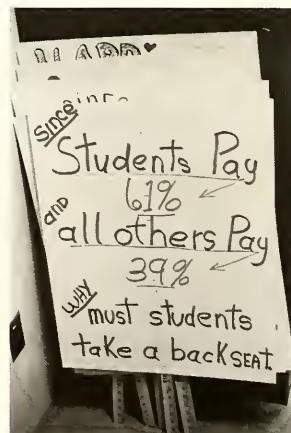 Since
Students Pay
61%
and
all others Pay
39%
WHY
must students
take a back SEAT